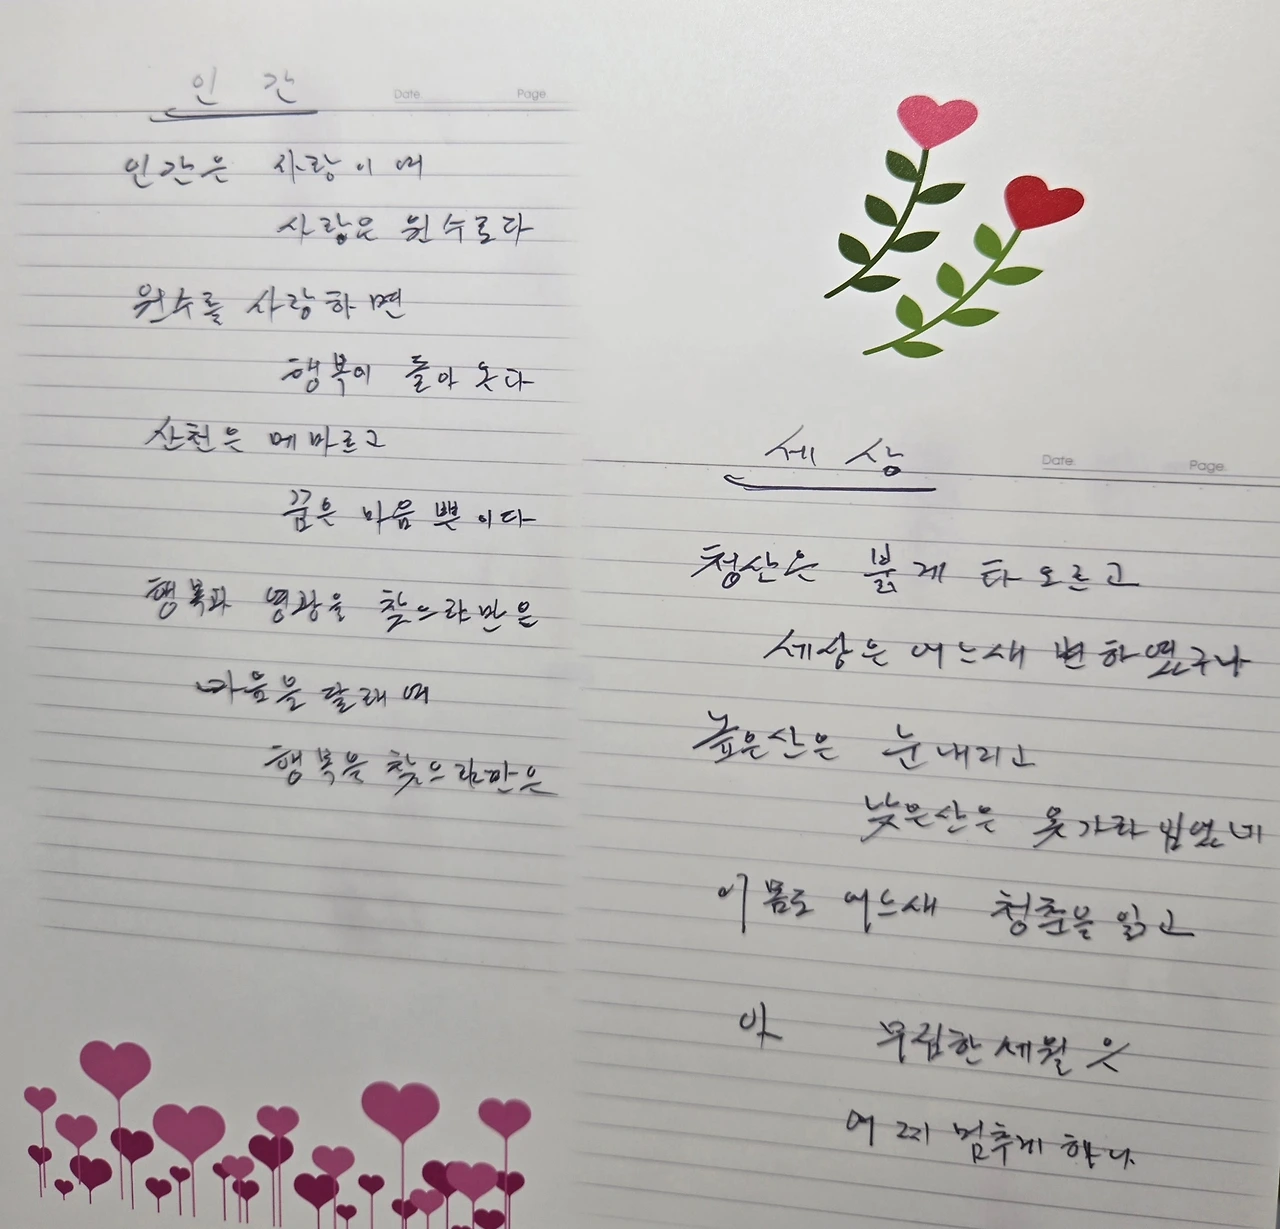 인 간
Date. Page.
인간은 사랑이며
사랑은 원수로다
원수를 사랑하면
행복이 돌아 온다
산천은 메마르고
꿈은 마음 뿐이다
행복과 영광을 찾으랴만은
마음을 달래며
행복을 찾으랴만은
세 상
Date. Page.
청산은 붉게 타오르고
세상은 어느새 변하였구나
높은산은 눈내리고
낮은산은 옷가라 입었네
이몸도 어느새 청춘을 잃고
아 무심한 세월
어찌 멈추게 하나